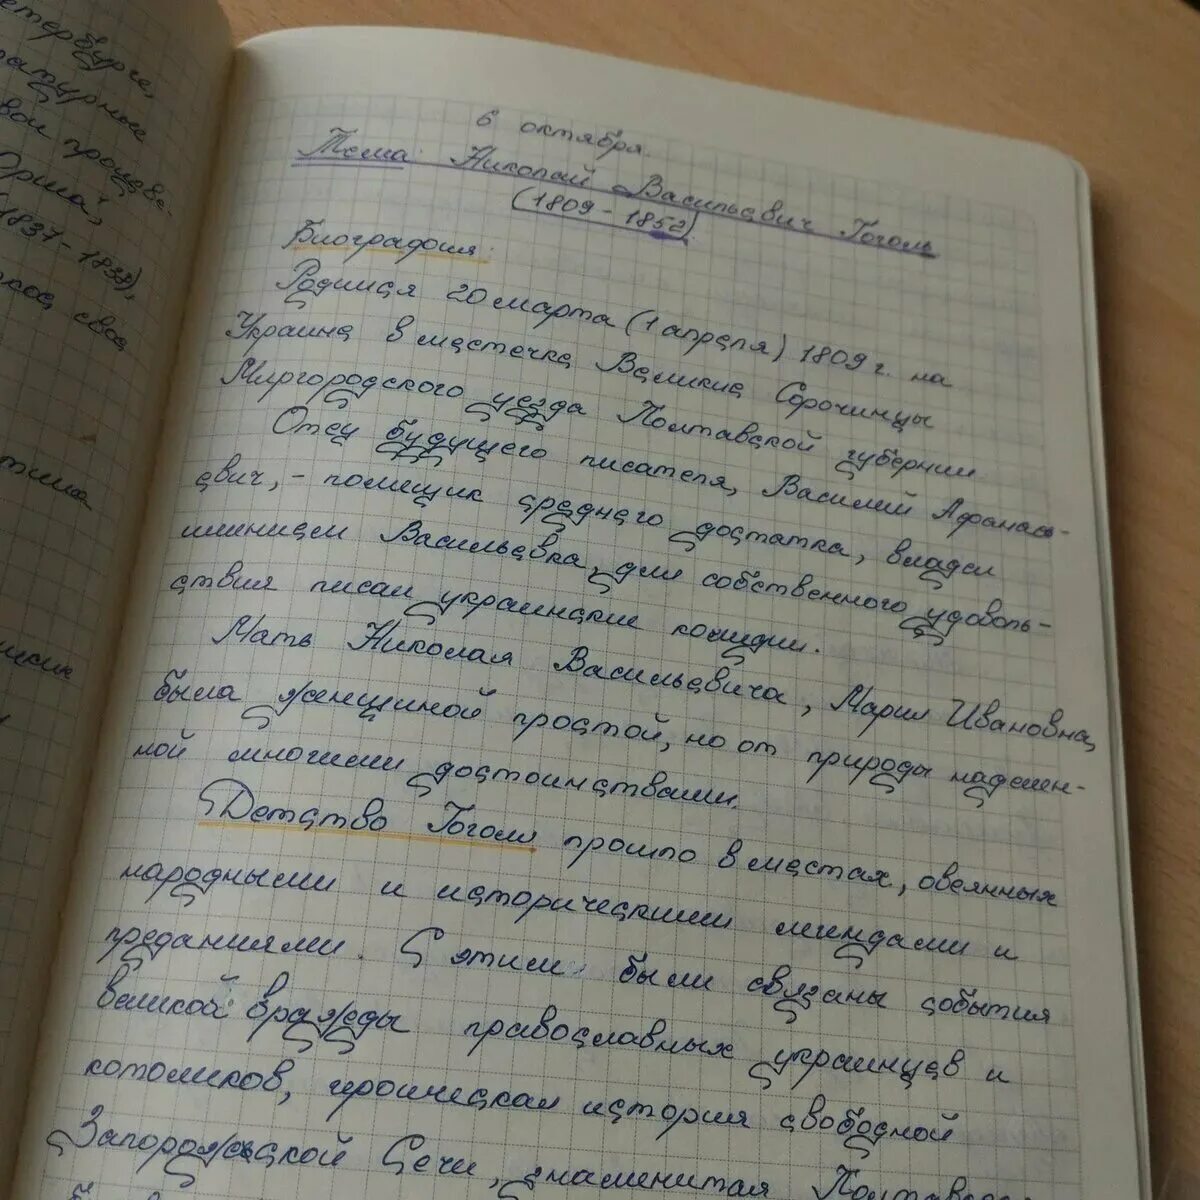 етербурге,
ратурные
вои произве-
Орша,
1837-1838),
6 октября.
Тема: Николай Васильевич Гоголь
(1809 - 1852).
Биография:
Родился 20 марта (1 апреля) 1809 г. на
Украине в местечке Великие Сорочинцы
Миргородского уезда Полтавской губернии.
Отец будущего писателя, Василий Афанась-
евич, - помещик среднего достатка, владел
имением Васильевка, для собственного удоволь-
ствия писал украинские комедии.
Мать Николая Васильевича, Мария Ивановна,
была женщиной простой, но от природы наделен-
ной многими достоинствами.
Детство Гоголя прошло в местах, овеянных
народными и историческими легендами и
преданиями. С этим были связаны события
великой вражды православных украинцев и
католиков, героическая история свободной
Запорожской Сечи, знаменитая